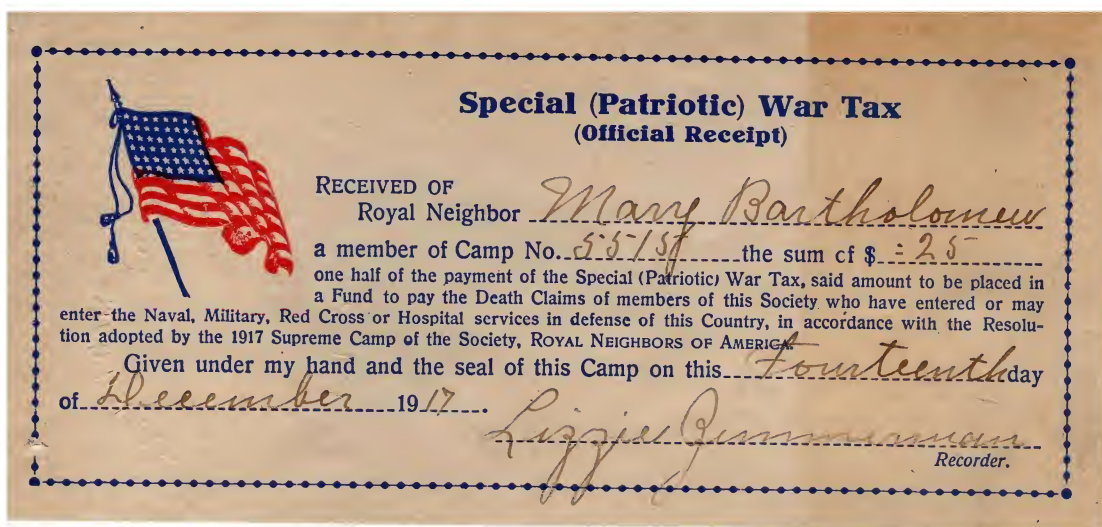 Special (Patriotic) War Tax
(Official Receipt)
RECEIVED OF
Royal Neighbor Mary Bartholomew
a member of Camp No. the sum cf $ 25
one half of the payment of the Special (Patriotic) War Tax, said amount to be placed in
a Fund to pay the Death Claims of members of this Society who have entered or may
enter the Naval, Military, Red Cross or Hospital services in defense of this Country, in accordance with the Resolu-
tion adopted by the 1917 Supreme Camp of the Society, ROYAL NEIGHBORS OF AMERICA.
Given under my hand and the seal of this Camp on this Fourteenth day
of December 1917.
Lizzie Zimmerman
Recorder.